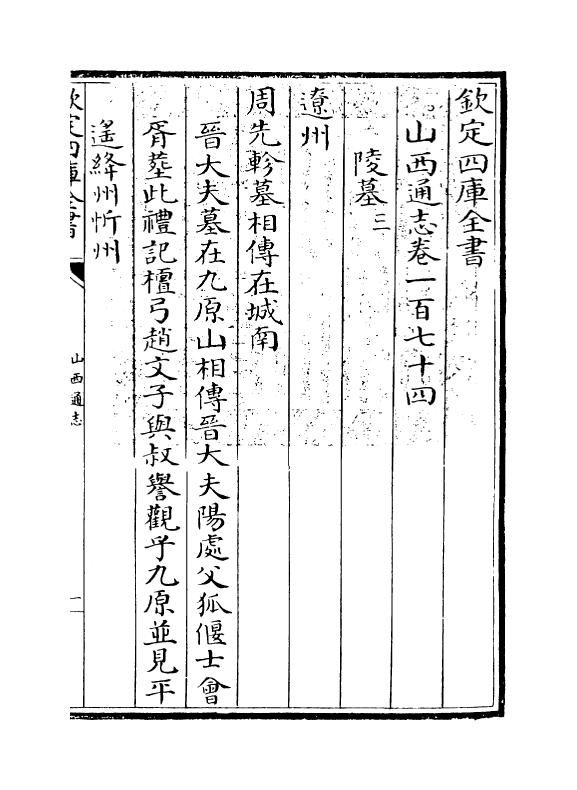 欽定四庫全書
山西通志卷一百七十四
陵墓三
遼州
周先軫墓相傳在城南
晉大夫墓在九原山相傳晉大夫陽處父狐偃士會
胥塟此禮記檀弓趙文子與叔譽觀乎九原並見平
遙絳州忻州
欽定四庫全書
山西通志
一